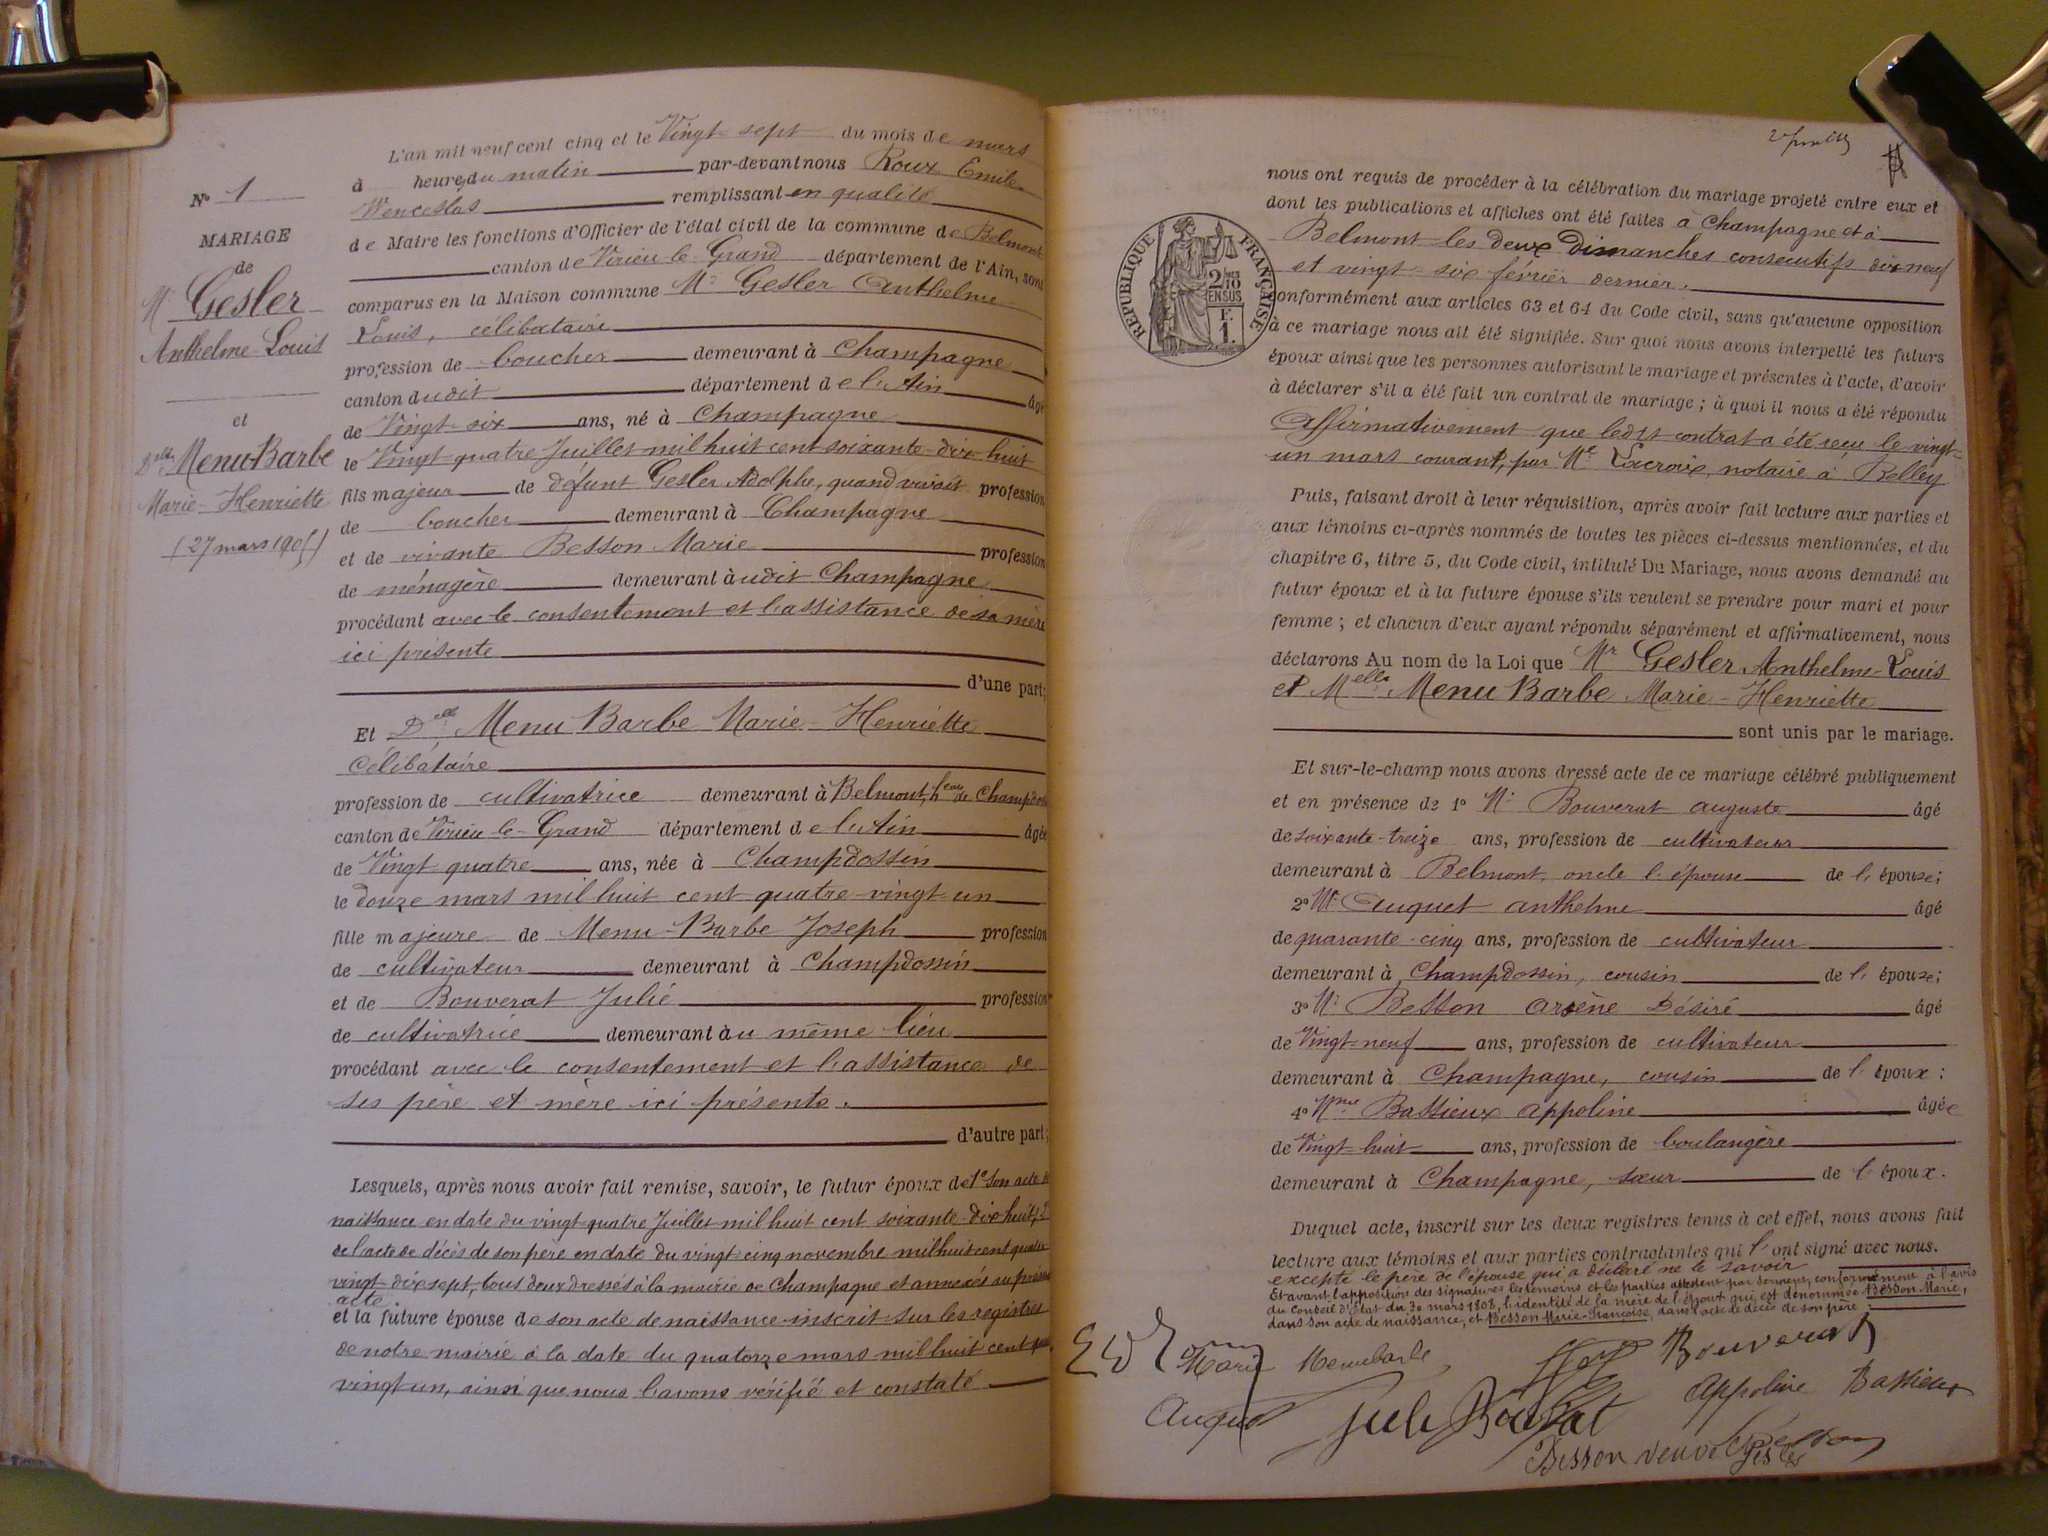 N° 1
MARIAGE
de
Mr Gesler
Anthelme-Louis
et
Delle Menu-Barbe
Marie-Henriette
(27 mars 1905)
L'an mil neuf cent cinq et le Vingt-sept du mois de mars
à heure du matin par-devant nous Roux Emile
Wenceslas remplissant en qualité
de Maire les fonctions d'Officier de l'état civil de la commune de Belmont
canton de Virieu-le-Grand département de l'Ain, sont
comparus en la Maison commune Mr Gesler Anthelme
Louis, célibataire
profession de boucher demeurant à Champagne
canton dudit département de l'Ain âgé
de Vingt-six ans, né à Champagne
le Vingt-quatre Juillet mil huit cent soixante-dix-huit
fils majeur de défunt Gesler Adolphe, quand vivait profession
de boucher demeurant à Champagne
et de vivante Besson Marie profession
de ménagère demeurant àudit Champagne
procédant avec le consentement et l'assistance de sa mère
ici présente
d'une part;
Et Delle Menu Barbe Marie-Henriette
Célibataire
profession de cultivatrice demeurant à Belmont, heau de Champdossin
canton de Virieu-le-Grand département de l'Ain âgée
de Vingt quatre ans, née à Champdossin
le douze mars mil huit cent quatre-vingt-un
fille majeure de Menu-Barbe Joseph profession
de cultivateur demeurant à Champdossin
et de Bouverat Julie profession
de cultivatrice demeurant àu même lieu
procédant avec le consentement et l'assistance de
ses père et mère ici présents.
d'autre part;
Lesquels, après nous avoir fait remise, savoir, le futur époux de 1° son acte de
naissance en date du vingt-quatre Juillet mil huit cent soixante-dix-huit, 2°
de l'acte de décès de son père en date du vingt-cinq novembre mil huit cent quatre
vingt-dix-sept, tous deux dressés à la mairie de Champagne et annexés au présent
acte
et la future épouse de son acte de naissance inscrit sur les registres
de notre mairie à la date du quatorze mars mil huit cent quatre
vingt un, ainsi que nous l'avons vérifié et constaté
RÉPUBLIQUE FRANÇAISE
2/10
EN SUS
1 F.
nous ont requis de procéder à la célébration du mariage projeté entre eux et
dont les publications et affiches ont été faites à Champagne et à
Belmont les deux Dimanches consécutifs dix-neuf
et vingt-six février dernier.
conformément aux articles 63 et 64 du Code civil, sans qu'aucune opposition
à ce mariage nous ait été signifiée. Sur quoi nous avons interpellé les futurs
époux ainsi que les personnes autorisant le mariage et présentes à l'acte, d'avoir
à déclarer s'il a été fait un contrat de mariage; à quoi il nous a été répondu
Affirmativement que ledit contrat a été reçu le vingt-
un mars courant, par Me Lacroix, notaire à Belley
Puis, faisant droit à leur réquisition, après avoir fait lecture aux parties et
aux témoins ci-après nommés de toutes les pièces ci-dessus mentionnées, et du
chapitre 6, titre 5, du Code civil, intitulé Du Mariage, nous avons demandé au
futur époux et à la future épouse s'ils veulent se prendre pour mari et pour
femme; et chacun d'eux ayant répondu séparément et affirmativement, nous
déclarons Au nom de la Loi que Mr Gesler Anthelme-Louis
et Melle Menu Barbe Marie-Henriette
sont unis par le mariage.
Et sur-le-champ nous avons dressé acte de ce mariage célébré publiquement
et en présence de 1° Mr Bouverat Auguste âgé
de soixante-treize ans, profession de cultivateur
demeurant à Belmont, oncle l'épouse de l'épouse;
2° Mr Auguet Anthelme âgé
de quarante-cinq ans, profession de cultivateur
demeurant à Champdossin, cousin de l'épouse;
3° Mr Besson Arsène Désiré âgé
de Vingt-neuf ans, profession de cultivateur
demeurant à Champagne, cousin de l'époux:
4° Mme Bassieux Appoline âgée
de Vingt huit ans, profession de boulangère
demeurant à Champagne, sœur de l'époux.
Duquel acte, inscrit sur les deux registres tenus à cet effet, nous avons fait
lecture aux témoins et aux parties contractantes qui l'ont signé avec nous.
excepté le père de l'épouse qui a déclaré ne le savoir
Et avant l'apposition des signatures les témoins et les parties attestent par serment, conformément à l'avis
du Conseil d'Etat du 30 mars 1808, l'identité de la mère de l'époux qui est dénommée Besson Marie,
dans son acte de naissance, et Besson Marie-Françoise, dans l'acte de décès de son père.
Marie Menubarbe
Bouverat
Auguet
Julie Bouverat
Appoline Bassieux
Besson veuve Gesler